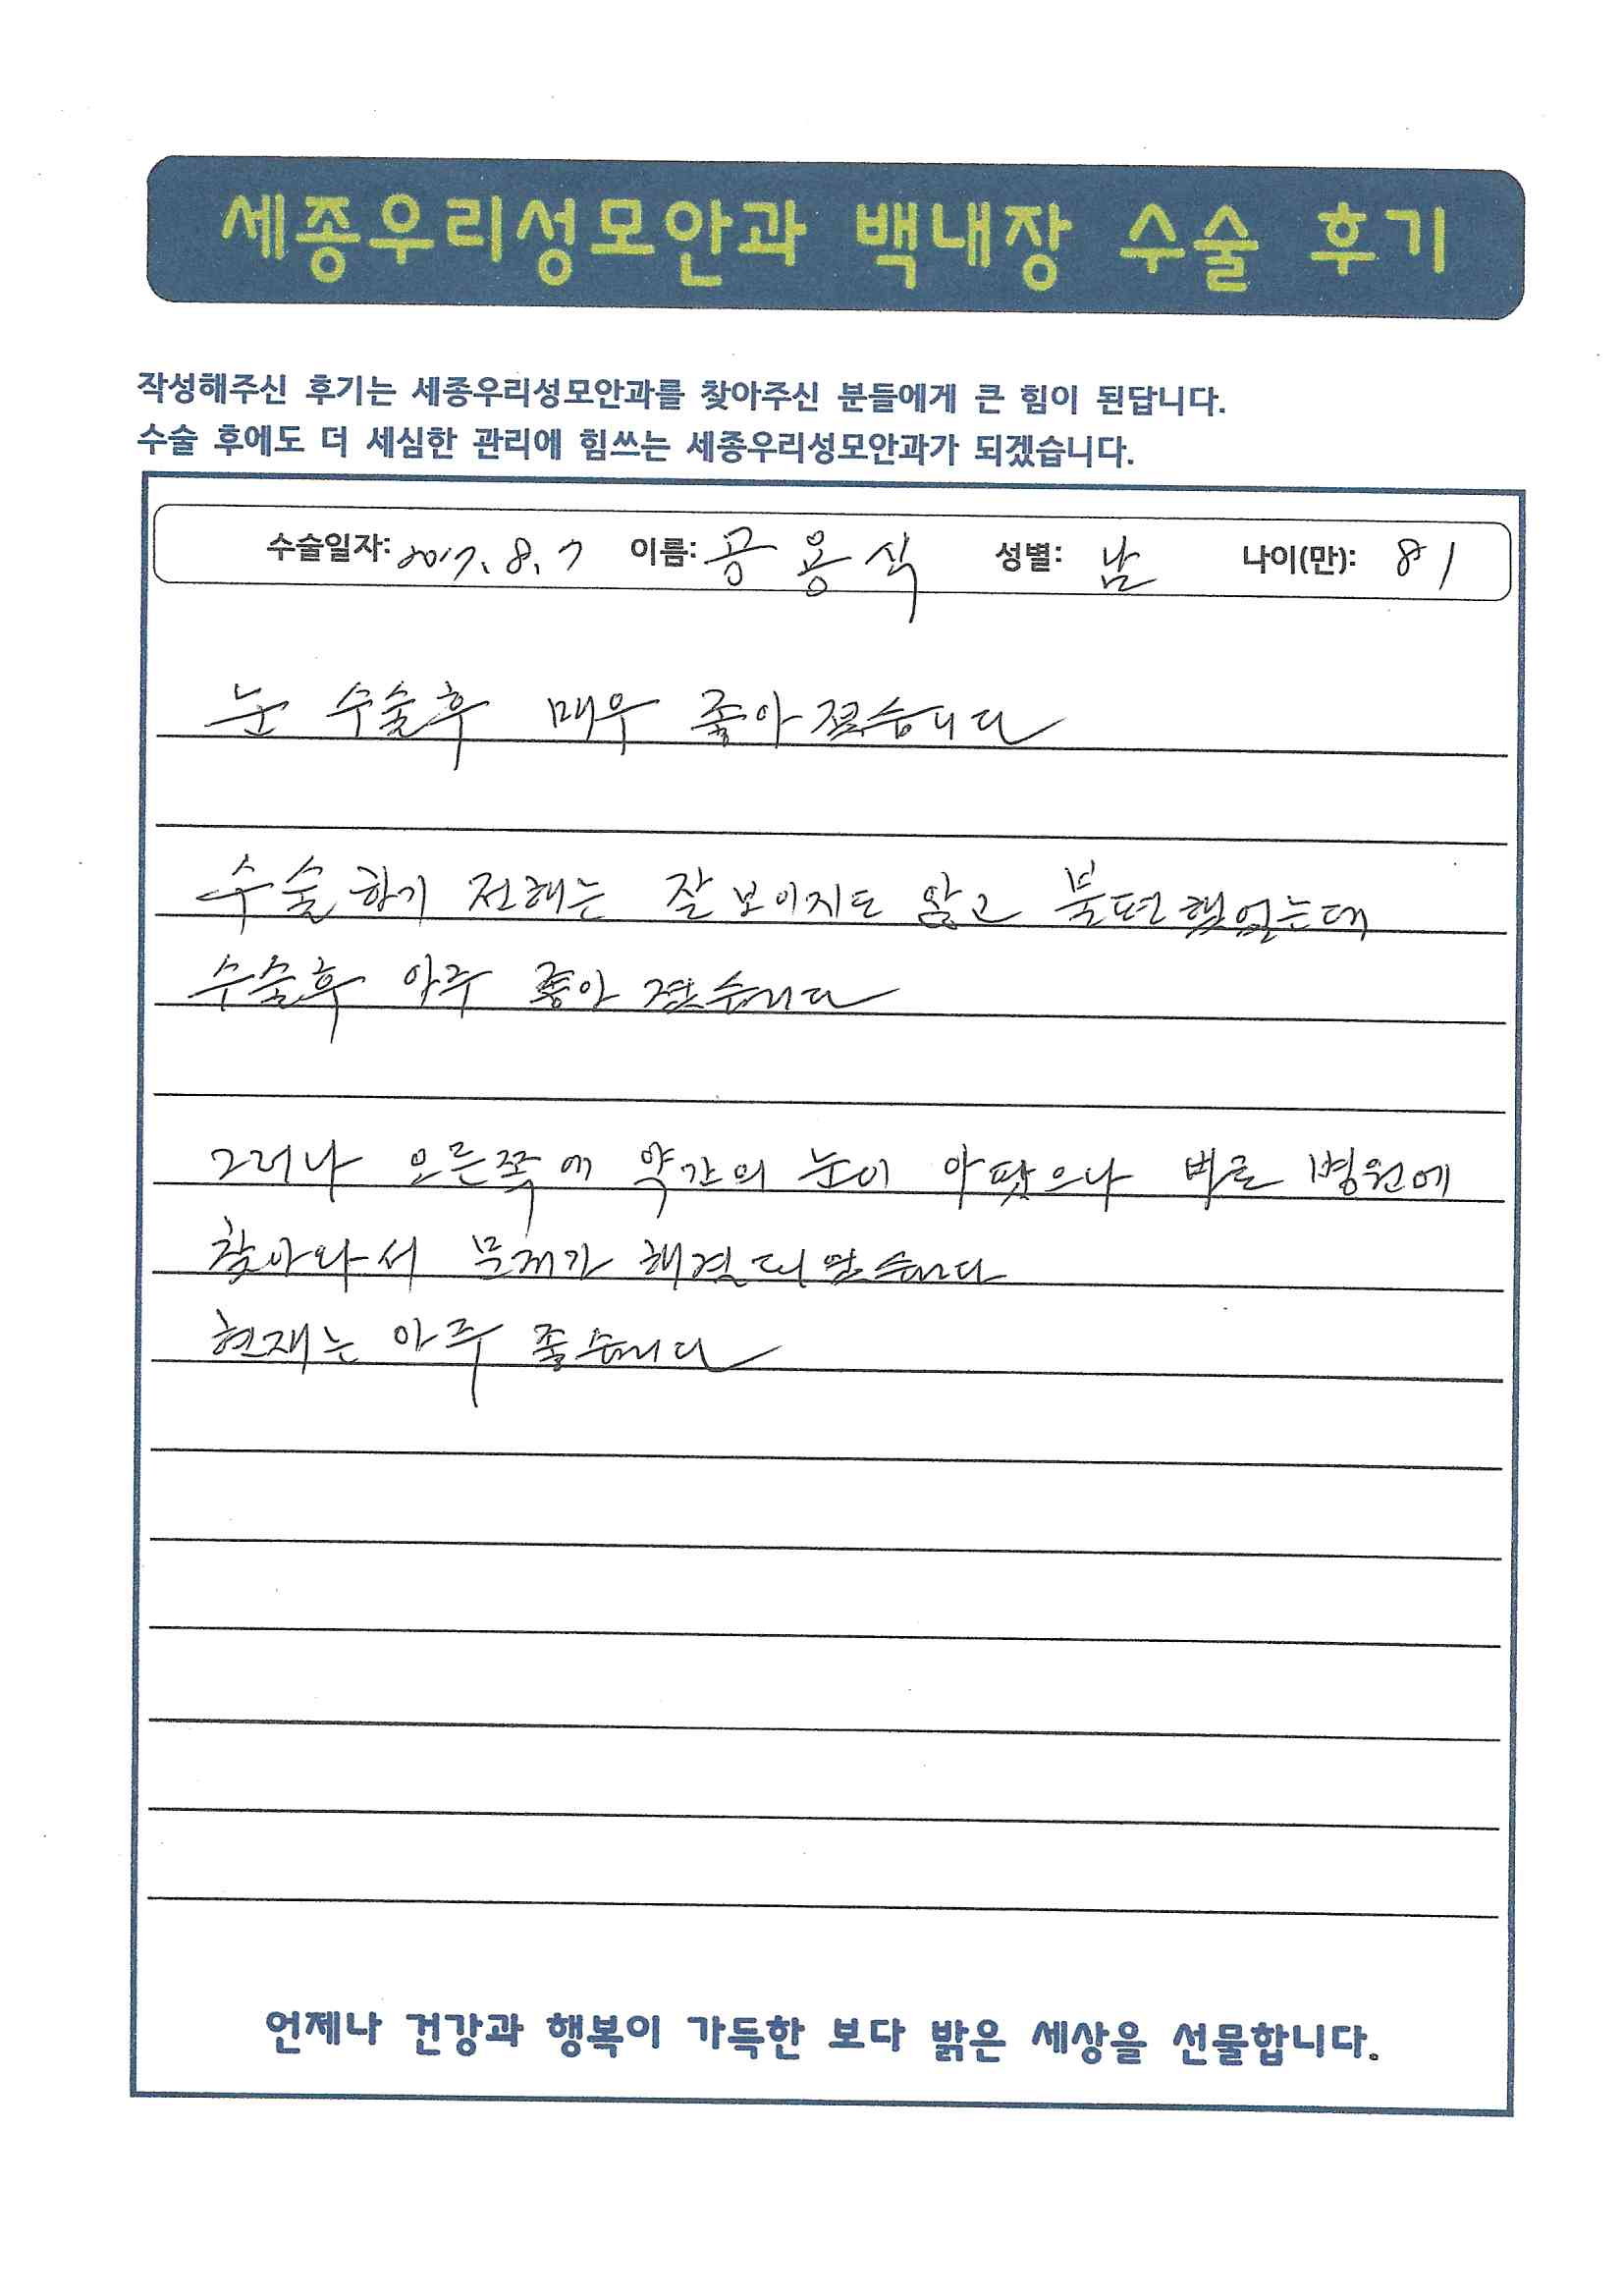 세종우리성모안과 백내장 수술 후기
작성해주신 후기는 세종우리성모안과를 찾아주신 분들에게 큰 힘이 된답니다.
수술 후에도 더 세심한 관리에 힘쓰는 세종우리성모안과가 되겠습니다.
수술일자: 2017. 8. 7 이름: 공용식 성별: 남 나이(만): 81
눈 수술후 매우 좋아 졌습니다
수술 하기 전해는 잘 보이지도 않고 불편했었는데
수술후 아주 좋아 졌습니다
그러나 오른쪽에 약간의 눈이 아팠으나 바로 병원에
찾아와서 문제가 해결되었습니다
현재는 아주 좋습니다
언제나 건강과 행복이 가득한 보다 밝은 세상을 선물합니다.